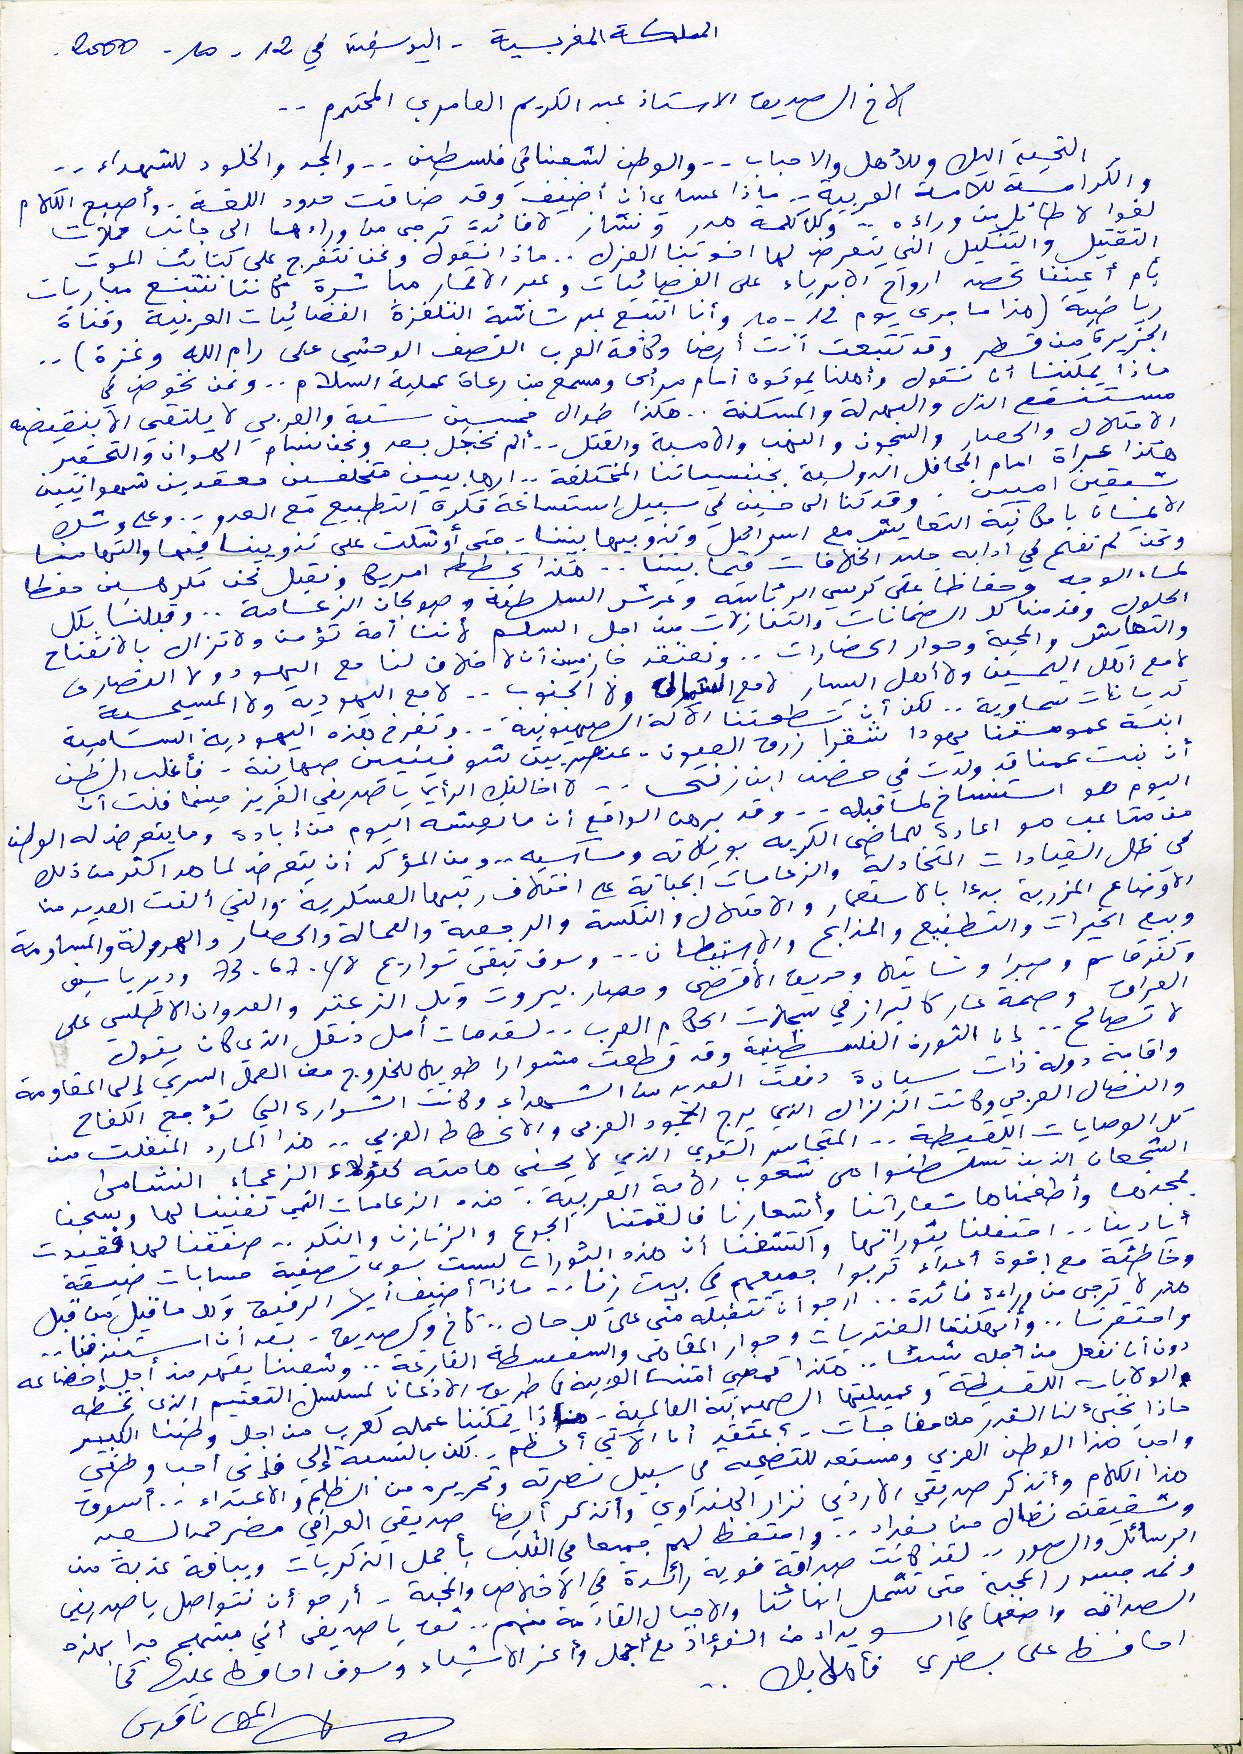 المملكة المغربية - اليوسفية في 12 - 10 - 2000.
الأخ الصديق الاستاذ عبد الكريم العامري المحترم --
التحية إليك وللأهل والاحباب -- والوطن لشعبنا في فلسطين -- والمجد والخلود للشهداء --
والكرامة للأمة العربية -- ماذا عساي أن أضيف وقد ضاقت حدود اللغة - وأصبح الكلام
لغوا لا طائل من وراءه -- وكل كلمة هدر ونشاز لا فائدة ترجى من وراءها الى جانب حملات
التقتيل والتنكيل التي يتعرض لها اخوتنا العزل .. ماذا نقول ونحن نتفرج على كتائب الموت
بأم أعيننا تحصد ارواح الابرياء على الفضائيات وعبر الاقمار مباشرة كأننا نتتبع مباريات
رياضية (هذا ما جرى يوم 12 - 10 وأنا اتتبع عبر شاشة التلفزة الفضائيات العربية وقناة
الجزيرة من قطر وقد تتبعت أنت أيضا وكافة العرب القصف الوحشي على رام الله وغزة) --
ماذا يمكننا أن نقول وأهلنا يموتون أمام مرأى ومسمع من رعاة عملية السلام .. ونحن نخوض في
مستنقع الذل والبهدلة والمسكنة .. هكذا طوال خمسين سنة والعربي لا يلتقي الا بنقيضه
الاحتلال والحصار والسجون والنهب والامية والقتل .. ألم نخجل بعد ونحن نسام الهوان والتحقير
هكذا عراة امام المحافل الدولية بجنسياتنا المختلفة .. ارهابيين متخلفين معقدين شهوانيين
شبقين اميين . وقد كنا الى حين في سبيل استساغة فكرة التطبيع مع العدو .. وعلى وشك
الايمان بامكانية التعايش مع اسرائيل وتذويبها بيننا - حتى أوشكت على تذويبنا فيها والتهامنا
ونحن لم نفلح في إذابة جليد الخلافات فيما بيننا .. هكذا تخطط امريكا ونقبل نحن مكرهين حفظا
لماء الوجه وحفاظا على كرسي الرئاسة وعرش السلطنة وصولجان الزعامة .. وقبلنا بكل
الحلول وقدمنا كل الضمانات والتنازلات من اجل السلم لأننا أمة تؤمن ولا تزال بالانفتاح
والتعايش والمحبة وحوار الحضارات .. ونعتقد جازمين أن لا خلاف لنا مع اليهود ولا النصارى
لا مع اهل اليمين ولا أهل اليسار لا مع الشمال ولا الجنوب .. لا مع اليهودية ولا المسيحية
كديانات سماوية .. لكن أن تسطحنا الآلة الصهيونية .. وتفرخ هذه اليهودية السامية
ابنة عمومتنا يهودا شقرا زرق العيون - عنصريين شوفينيين صهاينة - فأغلب الظن
أن بنت عمنا قد ولدت في حضن ابن زنى .. لا اخالفك الرأي يا صديقي العزيز حينما قلت أن
اليوم هو استنساخ لما قبله -- وقد برهن الواقع أن ما نعيشه اليوم من إبادة وما يتعرض له الوطن
من متاعب هو اعادة للماضي الكريه بويلاته ومآسيه .. ومن المؤكد أن يتعرض لما هو أكثر من ذلك
في ظل القيادات المتخاذلة والزعامات الجبانة على اختلاف رتبها العسكرية . والتي ألفت العديد من
الاوضاع المزرية بدءا بالاستعمار والاحتلال والنكسة والرجعية والعمالة والحصار والهرولة والمساومة
وبيع الخيرات والتطبيع والمذابح والاستيطان .. وسوف تبقى تواريخ 48. 67. 73 ودير ياسين
وكفر قاسم وصبرا وشاتيلا وحريق الأقصى وحصار بيروت وتل الزعتر والعدوان الاطلسي على
العراق وصمة عار كالبراز في سجلات الحكام العرب .. لقد مات أمل دنقل الذي كان يقول
لا تصالح .. أما الثورة الفلسطينية وقد قطعت مشوارا طويلا للخروج من العمل السري إلى المقاومة
واقامة دولة ذات سيادة دفعت العديد من الشهداء وكانت الشرارة التي تؤجج الكفاح
والنضال العربي وكانت الزلزال الذي يرج الجمود العربي والانحطاط العربي .. هذا المارد المنفلت من
كل الوصايات اللقيطة .. المتجاسر القوي الذي لا يحني هامته لهؤلاء الزعماء النشامى
الشجعان الذين تسلطنوا على شعوب الأمة العربية . هذه الزعامات التي تغنينا لها وسبحنا
بمجدها وأطعمناها شعاراتنا وأشعارنا فألقمتنا الجوع والزنازن والنكد .. صفقنا لها فقيدت
أيادينا .. احتفلنا بثوراتها واكتشفنا أن هذه الثورات ليست سوى تصفية حسابات ضيقة
وخاطئة مع اخوة أعداء تربوا جميعهم في بيت زنا .. ماذا أضيف أيها الرفيق وكل ما قيل من قبل
هدر لا ترجى من وراءه فائدة .. ارجو أن تتقبله مني على كل حال .. كأخ وكصديق . بعد أن استنزفنا ..
واحتقرنا .. وأنهكتنا العنتريات وحوار المقاهي والسفسطة الفارغة .. وشعبنا يقهر من أجل إخضاعه
دون أن نفعل من أجله شيئا .. هكذا تمضي امتنا العربية في طريق الاذعان لمسلسل التعتيم الذي تخطه
الولايات اللقيطة وعميلتها الصهيونية العالمية - ماذا يمكننا عمله كعرب من اجل وطننا الكبير
ماذا يخبئ لنا القدر من مفاجآت - أعتقد أن الآتي أعظم .. لكن بالنسبة إلي فإنني أحب وطني
واحب هذا الوطن العربي ومستعد للتضحية في سبيل نصرته وتحريره من الظلم والاعتداء .. أسوق
هذا الكلام وأتذكر صديقي الاردني نزار الجنداوي وأتذكر أيضا صديقي العراقي مضر حمد السعيد
وشقيقته نضال من بغداد .. واحتفظ لهم جميعا في القلب بأجمل الذكريات وبباقة عذبة من
الرسائل والصور .. لقد كانت صداقة قوية رائدة في الإخلاص والمحبة - أرجو أن نتواصل يا صديقي
ونمد جسور المحبة حتى تشمل ابناءنا والاجيال القادمة منهم .. ثق يا صديقي أني مبتهج جدا بهذه
الصداقة واضعها في السويداء من الفؤاد مع أجمل وأعز الاشياء وسوف احافظ عليها كما
احافظ على بصري فأهلا بك ..